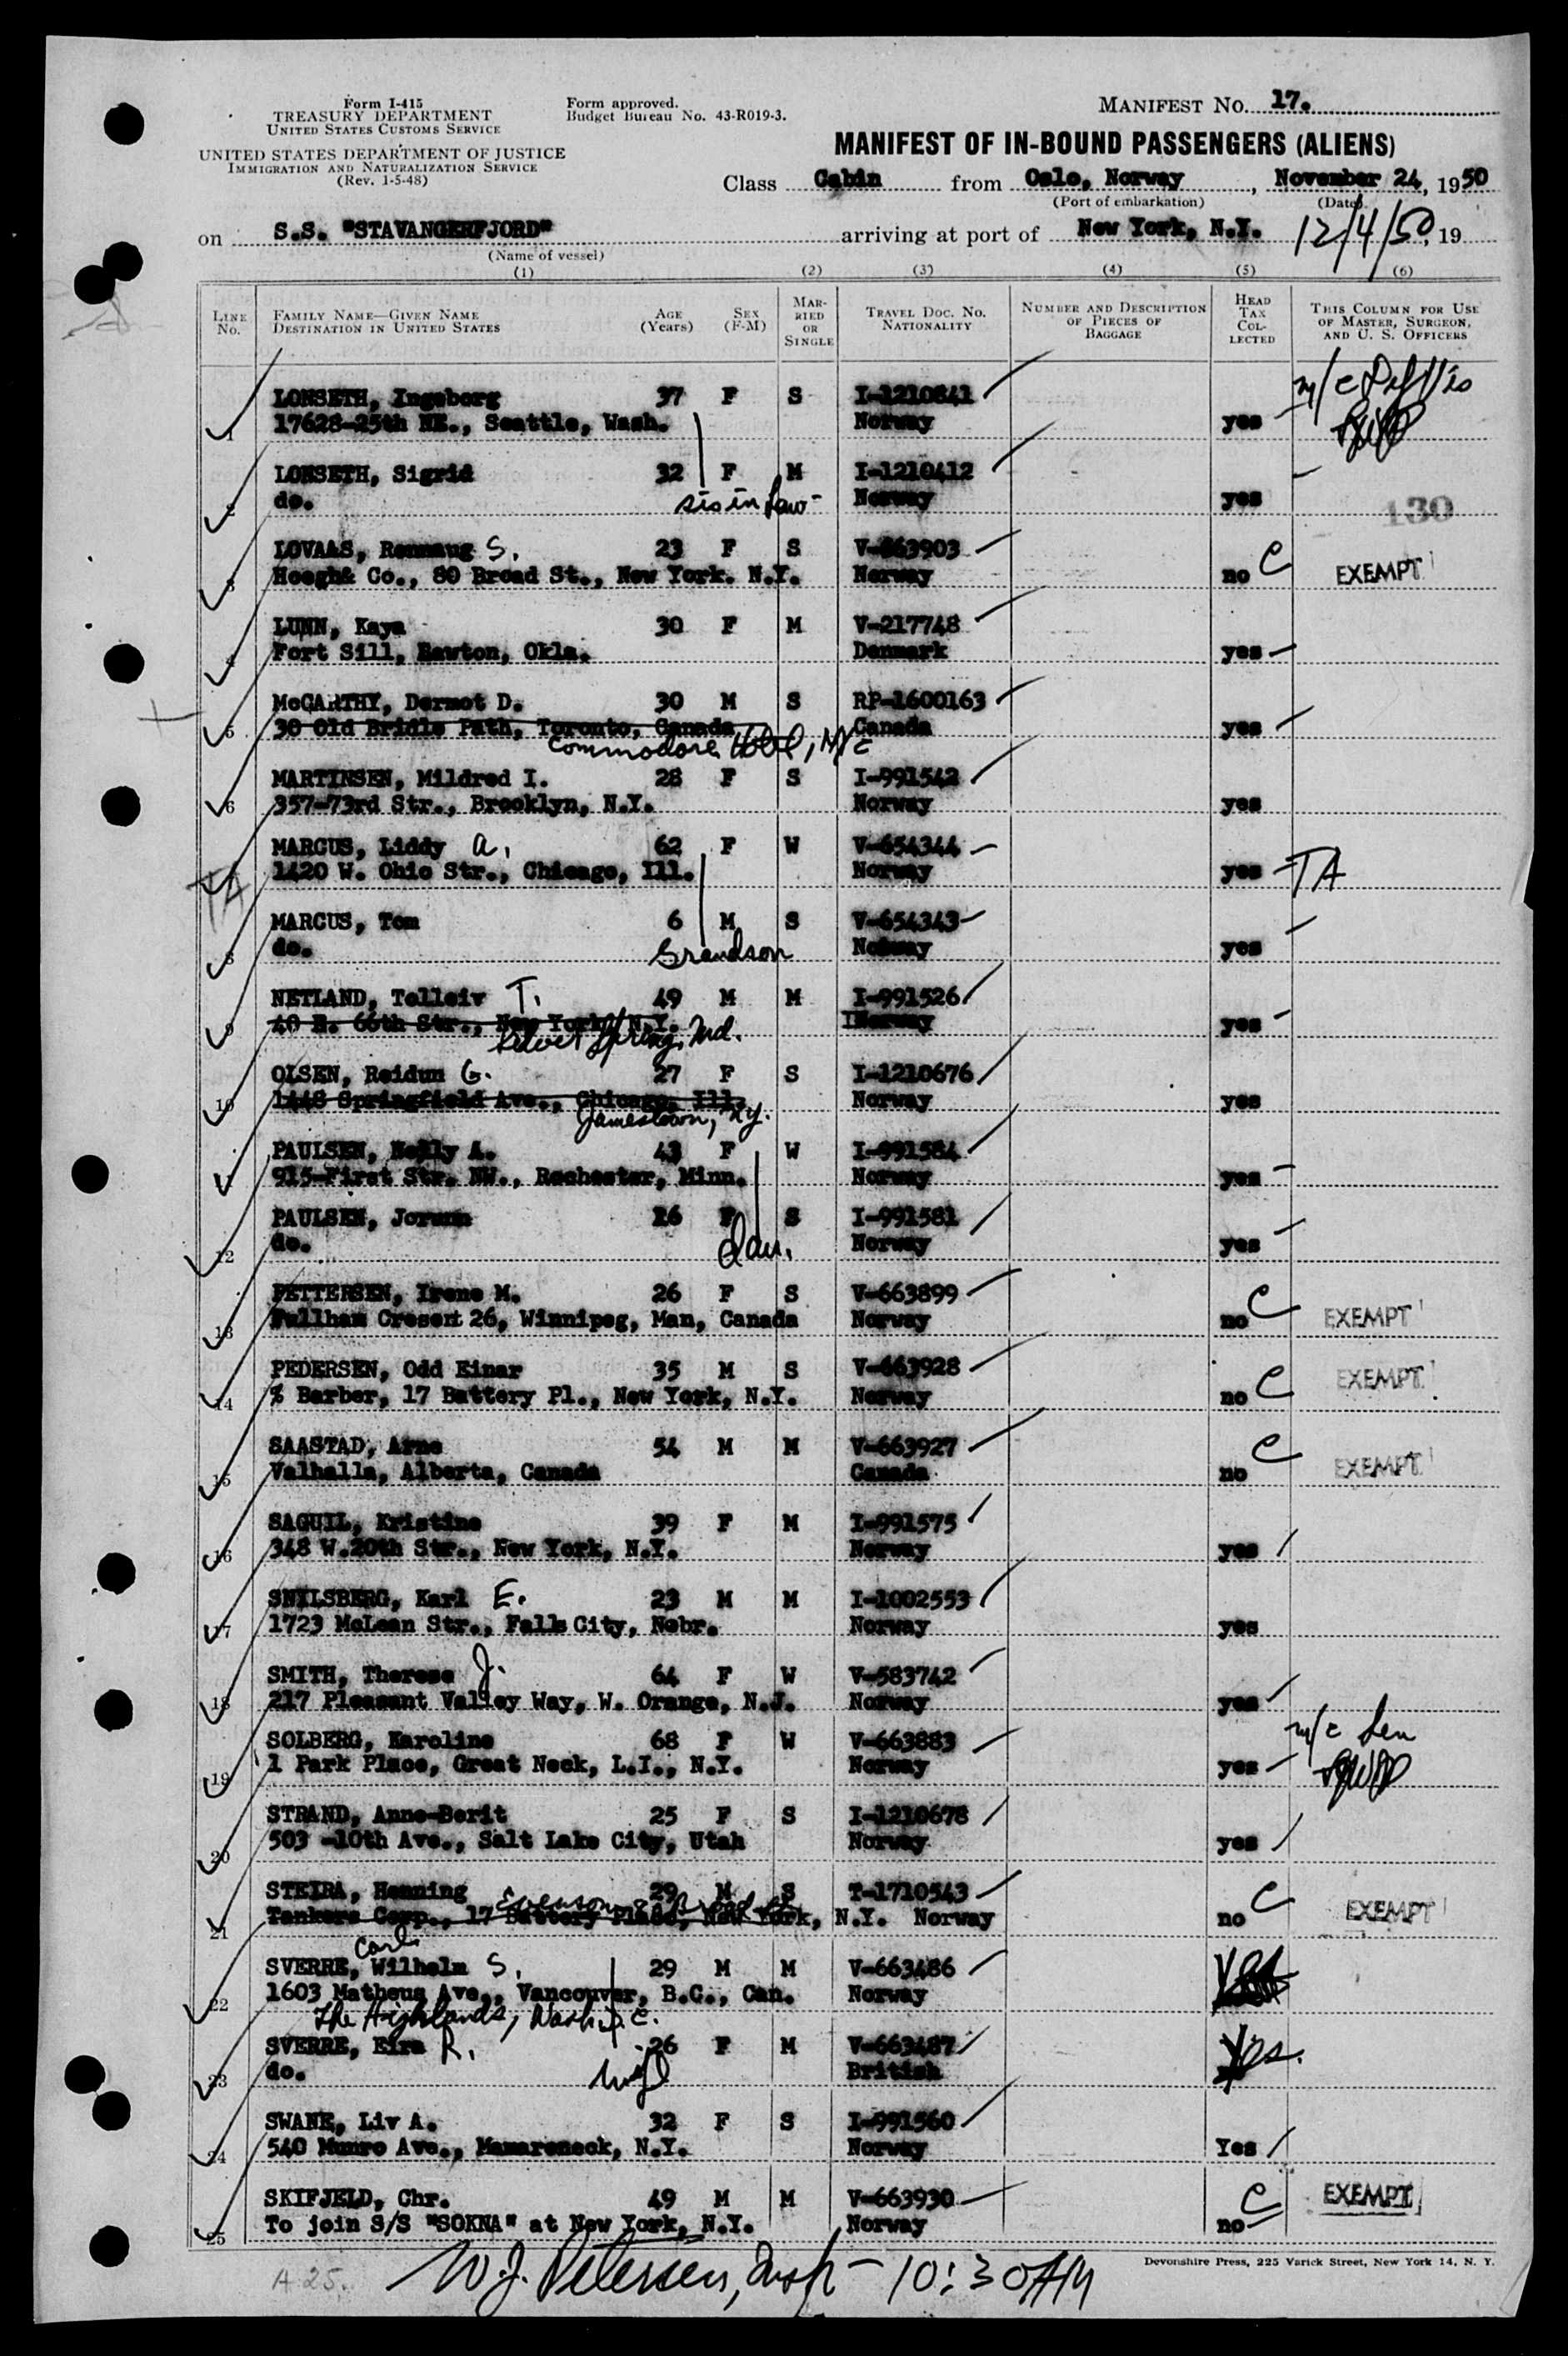 Form I-415
TREASURY DEPARTMENT
UNITED STATES CUSTOMS SERVICE
UNITED STATES DEPARTMENT OF JUSTICE
IMMIGRATION AND NATURALIZATION SERVICE
(Rev. 1-5-48)
Form approved.
Budget Bureau No. 43-R019-3.
MANIFEST No. 17.
MANIFEST OF IN-BOUND PASSENGERS (ALIENS)
Class Cabin from Oslo, Norway, November 24, 1950
(Port of embarkation) (Date)
on S.S. "STAVANGERFJORD" arriving at port of New York, N.Y. 12/4/50, 19
(Name of vessel)
(1) (2) (3) (4) (5) (6)
LINE No. FAMILY NAME—GIVEN NAME DESTINATION IN UNITED STATES AGE (Years) SEX (F-M) MARRIED OR SINGLE TRAVEL DOC. NO. NATIONALITY NUMBER AND DESCRIPTION OF PIECES OF BAGGAGE HEAD TAX COLLECTED THIS COLUMN FOR USE OF MASTER, SURGEON, AND U. S. OFFICERS
LONSETH, Ingeborg 37 F S I-1210841
1 17628-25th NE., Seattle, Wash. Norway yes
LONSETH, Sigrid 32 F M I-1210412
2 do. sis in law Norway yes
130
LOVAAS, Rennaug S. 23 F S V-663903
3 Hoegh& Co., 80 Broad St., New York. N.Y. Norway no C EXEMPT
LUNN, Kaya 30 F M V-217748
4 Fort Sill, Lawton, Okla. Denmark yes
McCARTHY, Dermot D. 30 M S RP-1600163
5 30 Old Bridle Path, Toronto, Canada Canada yes
Commodore Hotel, NYC
MARTINSEN, Mildred I. 28 F S I-991542
6 357-73rd Str., Brooklyn, N.Y. Norway yes
MARCUS, Liddy A. 62 F W V-654344
TA 1420 W. Ohio Str., Chicago, Ill. Norway yes TA
MARCUS, Tom 6 M S V-654343
8 do. Grandson Norway yes
NETLAND, Tolleiv T. 49 M M I-991526
9 40 E. 66th Str., New York, N.Y. Norway yes
Silver Spring, Md.
OLSEN, Reidun G. 27 F S I-1210676
10 1448 Springfield Ave., Chicago, Ill. Norway yes
Jamestown, NY.
PAULSEN, Nelly A. 43 F W I-991584
11 915-First Str. NW., Rochester, Minn. Norway yes
PAULSEN, Jorunn 16 F S I-991581
12 do. dau. Norway yes
PETTERSEN, Irene M. 26 F S V-663899
13 Fullham Cresent 26, Winnipeg, Man, Canada Norway no C EXEMPT
PEDERSEN, Odd Einar 35 M S V-663928
14 % Barber, 17 Battery Pl., New York, N.Y. Norway no C EXEMPT
SAASTAD, Arne 54 M M V-663927
15 Valhalla, Alberta, Canada Canada no C EXEMPT
SAGUIL, Kristine 39 F M I-991575
16 348 W.20th Str., New York, N.Y. Norway yes
SNILSBERG, Karl E. 23 M M I-1002553
17 1723 McLean Str., Falls City, Nebr. Norway yes
SMITH, Therese J. 64 F W V-583742
18 217 Pleasant Valley Way, W. Orange, N.J. Norway yes
SOLBERG, Karoline 68 F W V-663883
19 1 Park Place, Great Neck, L.I., N.Y. Norway yes
STRAND, Anne-Berit 25 F S I-1210678
20 503 -10th Ave., Salt Lake City, Utah Norway yes
STEIRA, Henning 29 M S T-1710543
21 Tankers Corp., 17 Battery Place, New York, N.Y. Norway no C EXEMPT
Carl
SVERRE, Wilhelm S. 29 M M V-663486
22 1603 Matheus Ave., Vancouver, B.C., Can. Norway
The Highlands, Wash. D.C.
SVERRE, Eira R. 26 F M V-663487
23 do. wife British Yes.
SWANE, Liv A. 32 F S I-991560
24 540 Munro Ave., Mamaroneck, N.Y. Norway Yes
SKIFJELD, Chr. 49 M M V-663930
25 To join S/S "SOKNA" at New York, N.Y. Norway no C EXEMPT
Devonshire Press, 225 Varick Street, New York 14, N. Y.
A 25.
W.J. Petersen, Insp - 10:30 AM